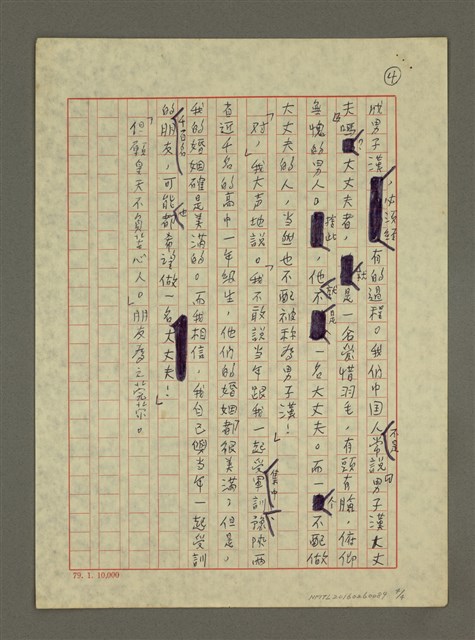 ④
成男子漢，必須經有的過程。我們中国人不是常說男子漢大丈
夫嗎？『大丈夫者，就是一名愛惜羽毛，有頭有臉，俯仰
無愧的男人。』據此，他就不是一名大丈夫。而一个不配做
大丈夫的人，当然也不配被称為男子漢！
「对，」我大声地說。「我不敢說当年跟我一起受軍訓集中豫陝两
省近千名的高中一年級生，他們的婚姻都很美滿？但是，
我的婚姻確是美滿的。而我相信，我自己與当年一起受訓
的千百名朋友，可能都也希望做一名大丈夫！」
「但願皇天不負苦心人。」朋友為之莞尔。
79. 1. 10,000
NMTL20160260089 4/4